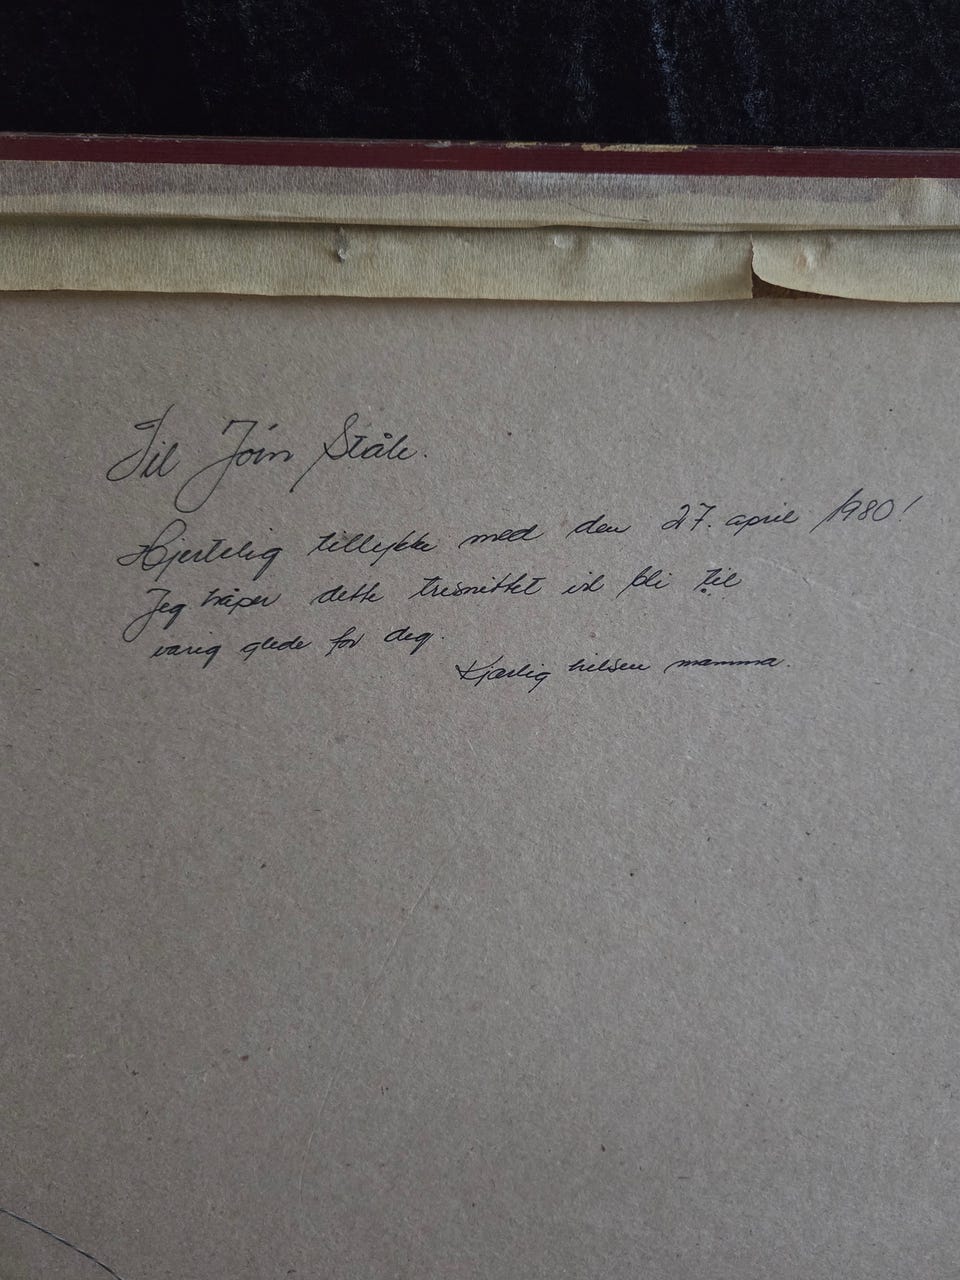 Til Jóin Ståle.
Hjertelig tillykke med den 27. april 1980!
Jeg håper dette tresnittet vil bli til
varig glede for deg.
Kjærlig hilsen mamma.